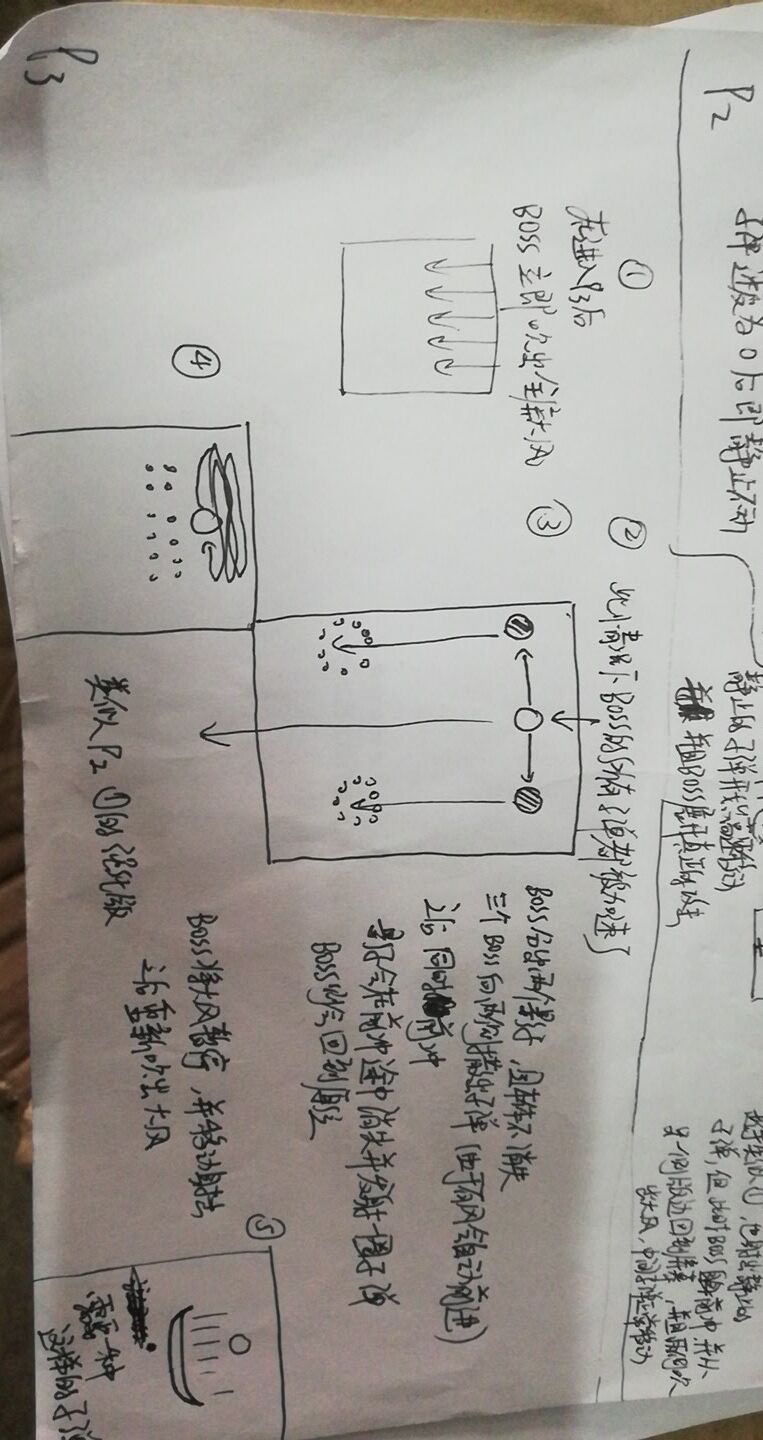 P2
子弹速度为0后即静止不动
静止的子弹开始高速移动
并且BOSS展开真正的攻击
类似①,也射出静止的
子弹,但此时BOSS 前冲,并从
另一侧版边回到屏幕,并且两侧吹
出大风,中间子弹正常移动
①
在进入P3后
BOSS立即吹出全屏大风
②
此情况下BOSS的所有子弹都被加速了
③
BOSS分出两个影子,且本体不消失
三个BOSS向两侧撒出子弹(由于有风会自动前进)
之后同时前冲
影子会在前冲途中消失并发射一圈子弹
BOSS则会回到原位
④
BOSS将大风暂停,并移动射击
之后重新吹出大风
类似P2 ①的强化版
⑤
需要一种
这样的子弹
P3